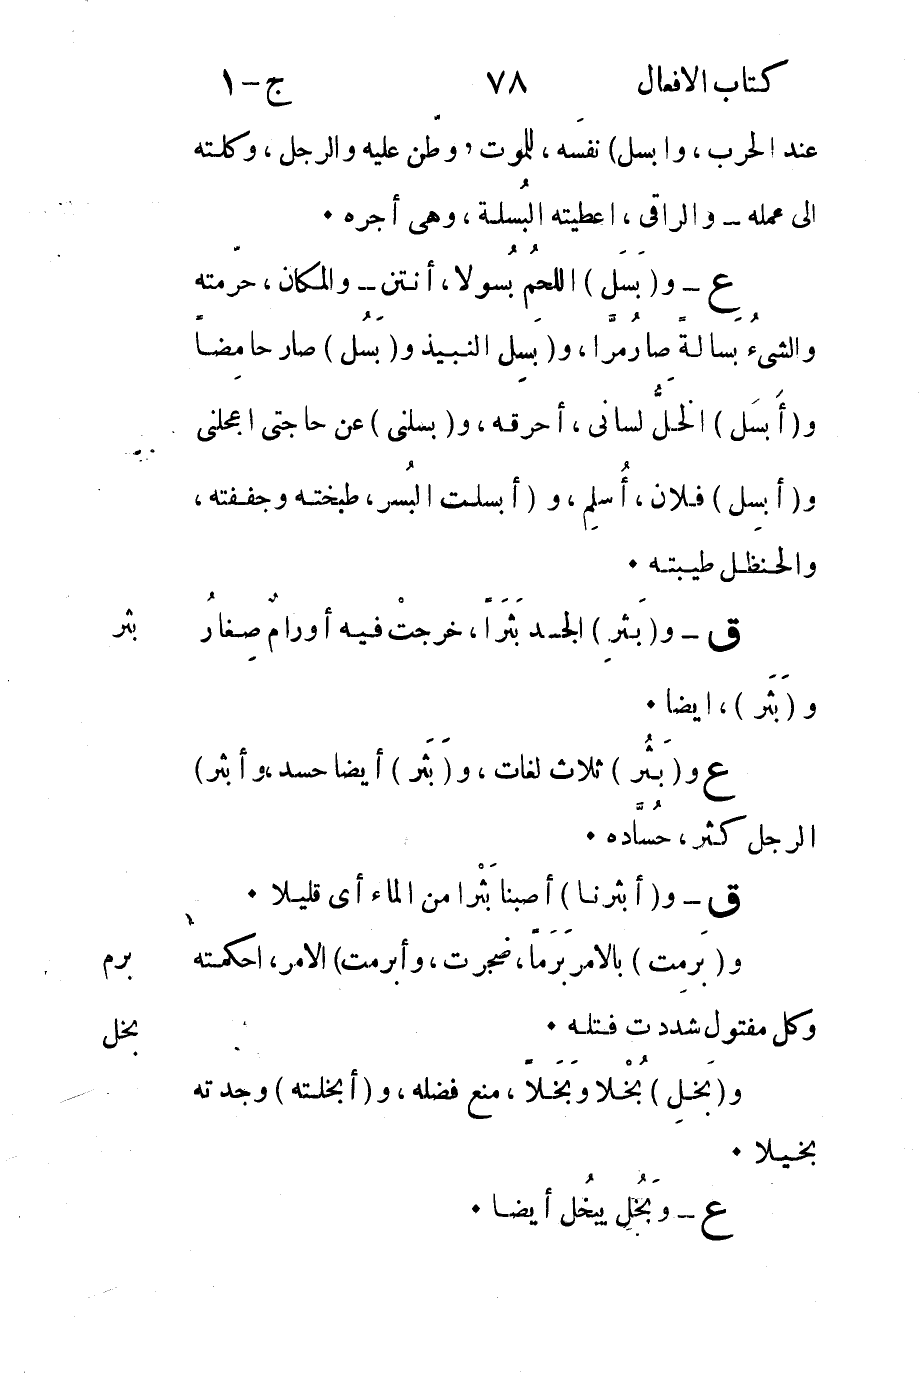 كتاب الافعال ٧٨ ج-١
عند الحرب، وابسل) نفسَه، للموت، وطّن عليه والرجل، وكلته
الى عمله – والراقى، اعطيته البُسلة، وهى أجره •
ع – و(بَسَل) اللحمُ بُسولا، أنتن – والمكان، حرّمته
والشىءُ بَسالةً صارمُرًّا، و(بَسِل النبيذ و(بَسُل) صار حامِضاً
و(أَبسَل) الخلُّ لسانى، أحرقه، و(بسلنى) عن حاجتى اعجلنى
و(أبسِل) فلان، أُسلِم، و (أبسلت البُسر، طبختـه وجففته،
والحنظل طيبته •
ق – و(بَثرِ) الجسد بَثَرًا، خرجتْ فيه أورامٌ صِغارُ
بثر
و (بَثَر)، ايضا •
ع و(بَثُر) ثلاث لغات، و(بَثَر) أيضا حسد، وأبثر)
الرجل كثر، حُسَّاده •
ق – و(أبثرنا) أصبنا بَثْرا من الماء أى قليلا •
و(بَرِمت) بالامر بَرَماً، ضجرت، وأبرمت) الامر، احكمته
برم
وكل مفتول شددت فتله •
بخل
و(بَخِل) بُخْلا وبَخَلاً، منع فضله، و(أبخلته) وجدته
بخيلا •
ع – وبَخُل يبخُل أيضا •